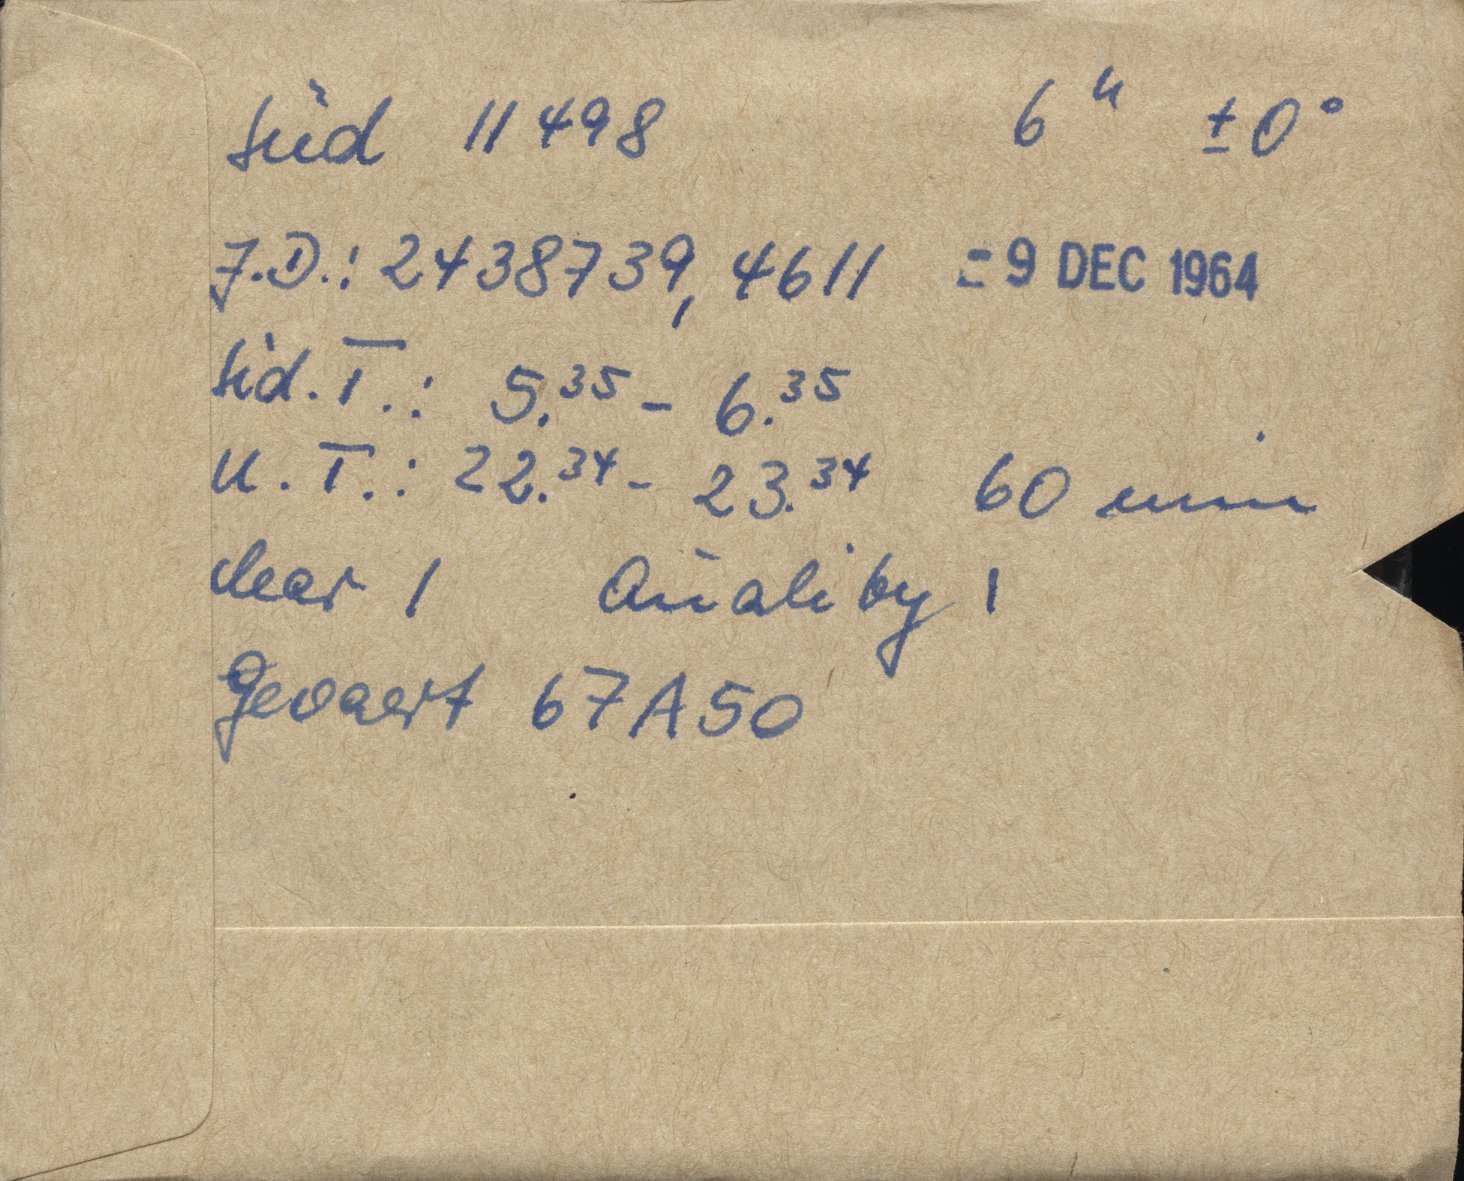 Süd 11498 6ʰ ±0°
J.D.: 2438739,4611 - 9 DEC 1964
Sid. T.: 5.³⁵ - 6.³⁵
U. T.: 22.³⁴ - 23.³⁴ 60 min
clear 1 Quality 1
Gevaert 67A50